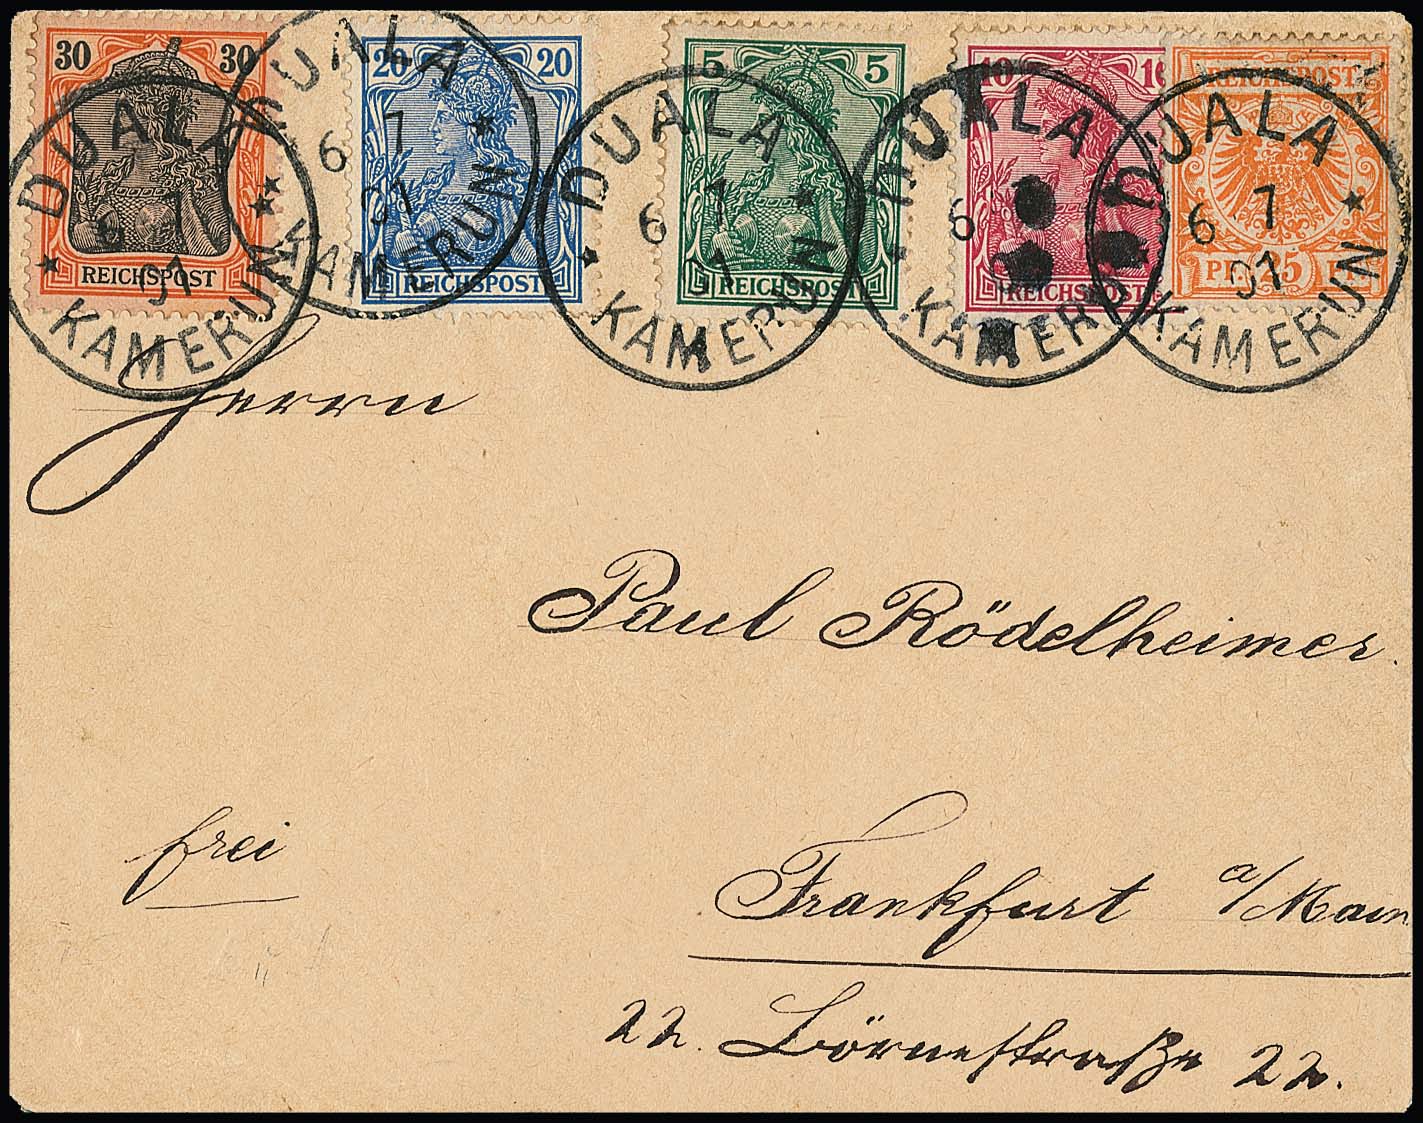 30 30
REICHSPOST
20 20
REICHSPOST
5 5
REICHSPOST
10 10
REICHSPOST
REICHSPOST
PF. 25 PF.
DUALA
6 7
01
KAMERUN
DUALA
6 7
01
KAMERUN
DUALA
6 7
01
KAMERUN
DUALA
6
KAMERUN
DUALA
6 7
01
KAMERUN
Herrn
Paul Rödelheimer.
frei
Frankfurt a/Main
22. Börnestraße 22.